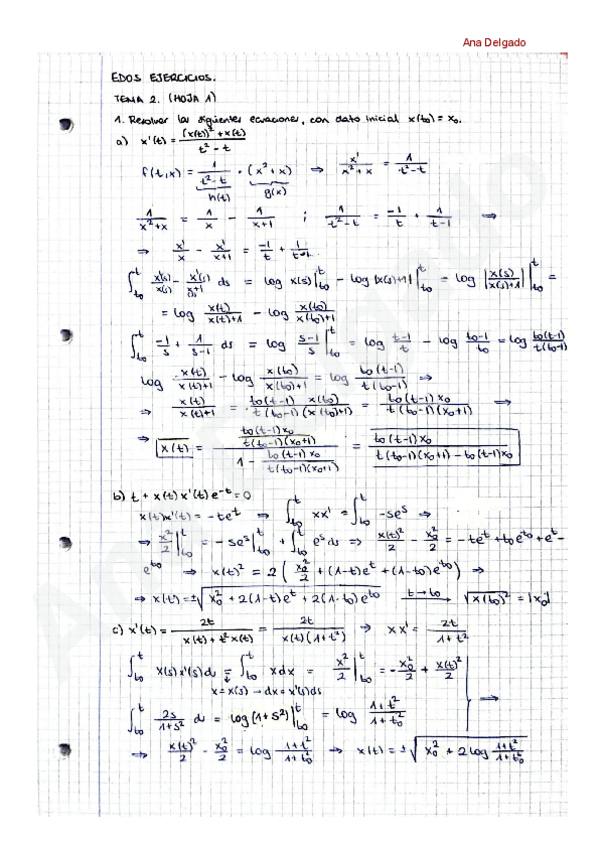 Ana Delgado
EDOS EJERCICIOS.
TEMA 2. (HOJA 1)
1. Resolver las siguientes ecuaciones, con dato inicial x(t₀) = x₀.
a) x'(t) = ((x(t))² + x(t))/(t² - t)
f(t,x) = 1/(t² - t) · (x² + x) ⇒ x'/(x² + x) = 1/(t² - t)
h(t) g(x)
1/(x² + x) = 1/x - 1/(x+1) ; 1/(t² - t) = -1/t + 1/(t-1) ⇒
⇒ x'/x - x'/(x+1) = -1/t + 1/(t-1)
∫_{t₀}^{t} x'(s)/x(s) - x'(s)/(x(s)+1) ds = log x(s)|_{t₀}^{t} - log |x(s)+1| |_{t₀}^{t} = log |x(s)/(x(s)+1)| |_{t₀}^{t} =
= log x(t)/(x(t)+1) - log x(t₀)/(x(t₀)+1)
∫_{t₀}^{t} -1/s + 1/(s-1) ds = log (s-1)/s |_{t₀}^{t} = log (t-1)/t - log (t₀-1)/t₀ = log t₀(t-1)/(t(t₀-1))
log x(t)/(x(t)+1) - log x(t₀)/(x(t₀)+1) = log t₀(t-1)/(t(t₀-1)) ⇒
⇒ x(t)/(x(t)+1) = t₀(t-1) x(t₀)/(t(t₀-1)(x(t₀)+1)) = t₀(t-1)x₀/(t(t₀-1)(x₀+1)) ⇒
⇒ x(t) = (t₀(t-1)x₀/(t(t₀-1)(x₀+1)))/(1 - t₀(t-1)x₀/(t(t₀-1)(x₀+1))) = t₀(t-1)x₀/(t(t₀-1)(x₀+1) - t₀(t-1)x₀)
b) t + x(t) x'(t) e^{-t} = 0
x(t)x'(t) = -te^t ⇒ ∫_{t₀}^{t} xx' = ∫_{t₀}^{t} -se^s ⇒
⇒ x²/2 |_{t₀}^{t} = -se^s |_{t₀}^{t} + ∫_{t₀}^{t} e^s ds ⇒ x(t)²/2 - x₀²/2 = -te^t + t₀e^{t₀} + e^t -
e^{t₀} ⇒ x(t)² = 2(x₀²/2 + (1-t)e^t + (1-t₀)e^{t₀}) ⇒
⇒ x(t) = ±√(x₀² + 2(1-t)e^t + 2(1-t₀)e^{t₀}) t→t₀ √(x(t₀)²) = |x₀|
c) x'(t) = 2t/(x(t) + t²x(t)) = 2t/(x(t)(1+t²)) ⇒ xx' = 2t/(1+t²)
∫_{t₀}^{t} x(s)x'(s)ds = ∫_{t₀}^{t} xdx = x²/2 |_{t₀}^{t} = -x₀²/2 + x(t)²/2
x = x(s) → dx = x'(s)ds
∫_{t₀}^{t} 2s/(1+s²) ds = log(1+s²)|_{t₀}^{t} = log (1+t²)/(1+t₀²) ⇒
⇒ x(t)²/2 - x₀²/2 = log (1+t²)/(1+t₀²) ⇒ x(t) = ±√(x₀² + 2 log (1+t²)/(1+t₀²))